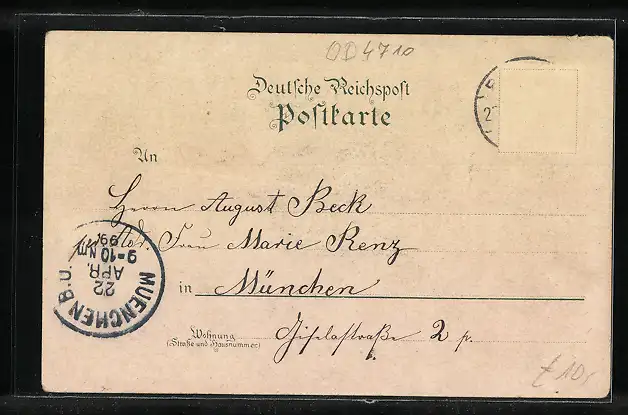 OD4710
Deutsche Reichspost
Postkarte
An
Herrn August Beck
Adr. Frau Marie Renz
in München
Wohnung
(Straße und Hausnummer)
Giselastraße 2 p.
MUENCHEN B.U.
22
APR.
9-10 NM
99